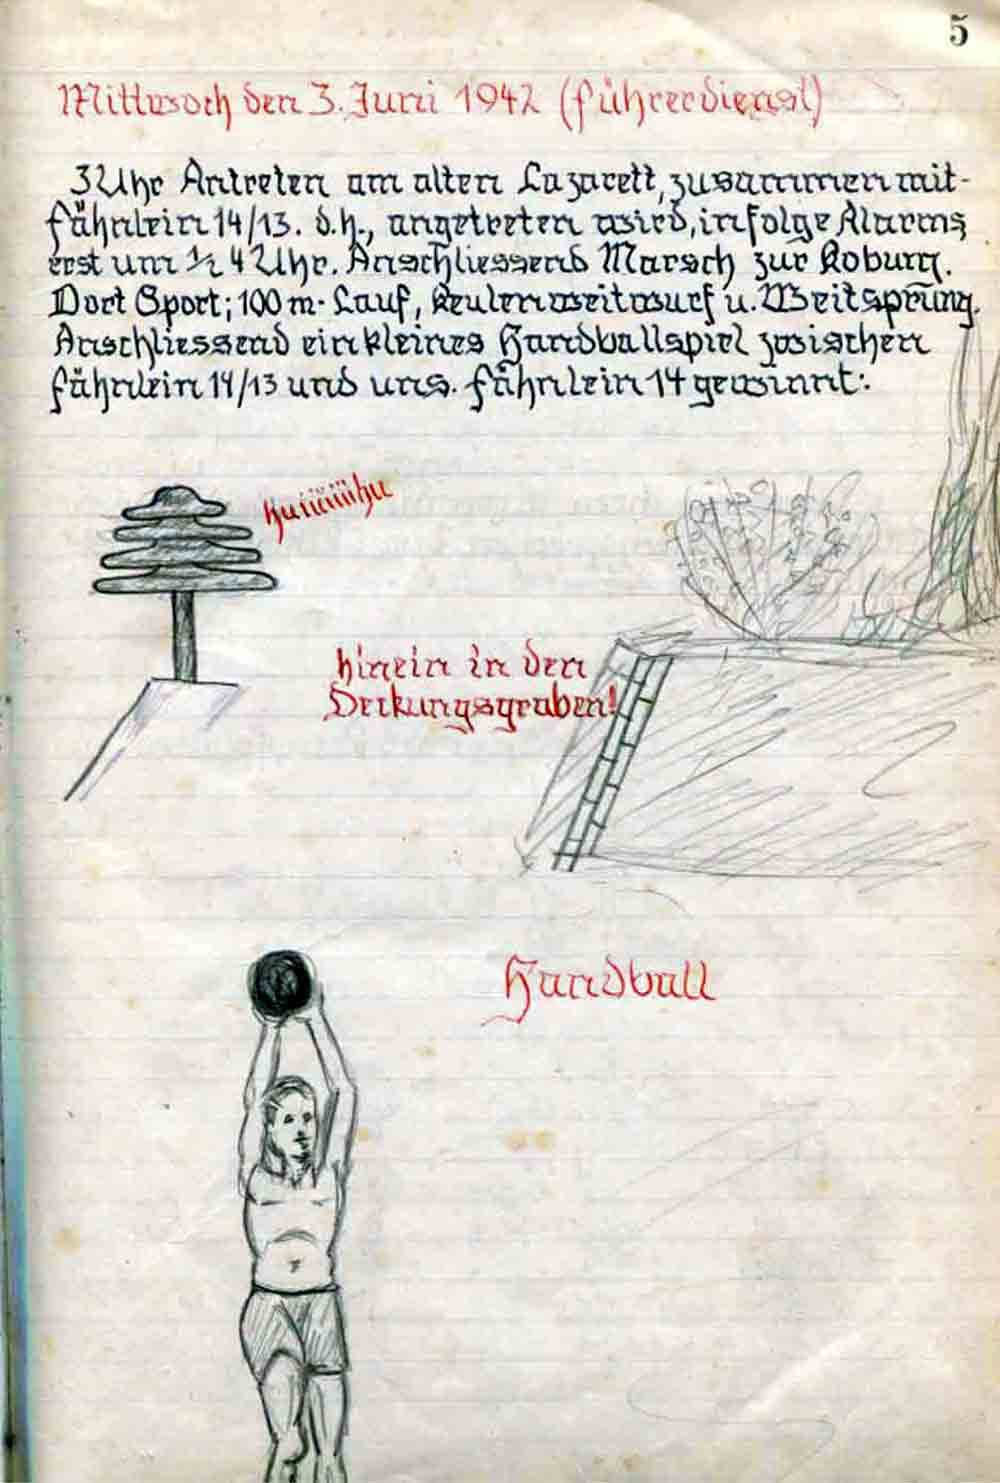 5
Mittwoch den 3. Juni 1942 (Führerdienst)
3 Uhr Antreten am alten Lazarett, zusammen mit-
Fähnlein 14/13. d.h., angetreten wird, infolge Alarms
erst um ½ 4 Uhr. Anschliessend Marsch zur Koburg.
Dort Sport; 100 m-Lauf, Keulenweitwurf u. Weitsprung.
Anschliessend ein kleines Handballspiel zwischen
Fähnlein 14/13 und uns. Fähnlein 14 gewinnt:.
huiüüüühu
hinein in den
Deckungsgraben!
Handball